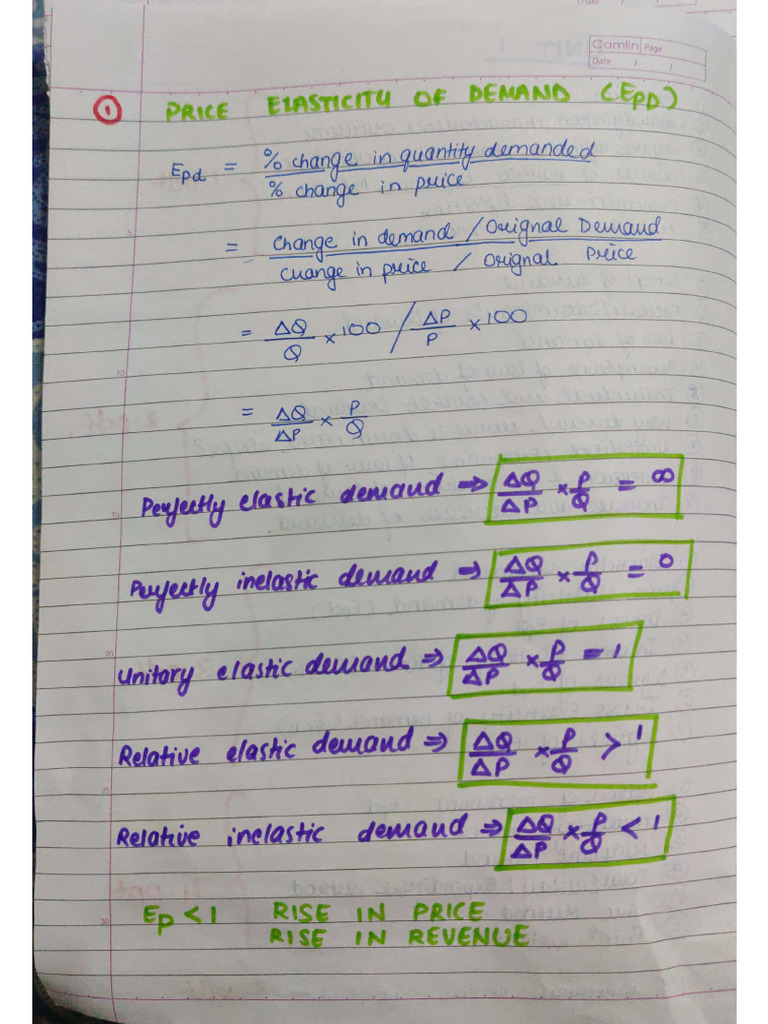 Camlin Page
Date / /
① PRICE ELASTICITY OF DEMAND (EPD)
Epd = % change in quantity demanded
% change in price
= change in demand / Orignal Demand
cuange in price / Orignal Price
= ΔQ/Q × 100 / ΔP/P × 100
= ΔQ/ΔP × P/Q
Perfectly elastic demand ⇒ ΔQ/ΔP × P/Q = ∞
Perfectly inelastic demand ⇒ ΔQ/ΔP × P/Q = 0
Unitary elastic demand ⇒ ΔQ/ΔP × P/Q = 1
Relative elastic demand ⇒ ΔQ/ΔP × P/Q > 1
Relative inelastic demand ⇒ ΔQ/ΔP × P/Q < 1
Ep < 1 RISE IN PRICE
RISE IN REVENUE